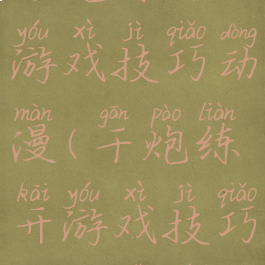 yóu xì jì qiǎo dòng
游戏技巧动
màn gān pào liàn
漫(干炮练
kāi yóu xì jì qiǎo
开游戏技巧